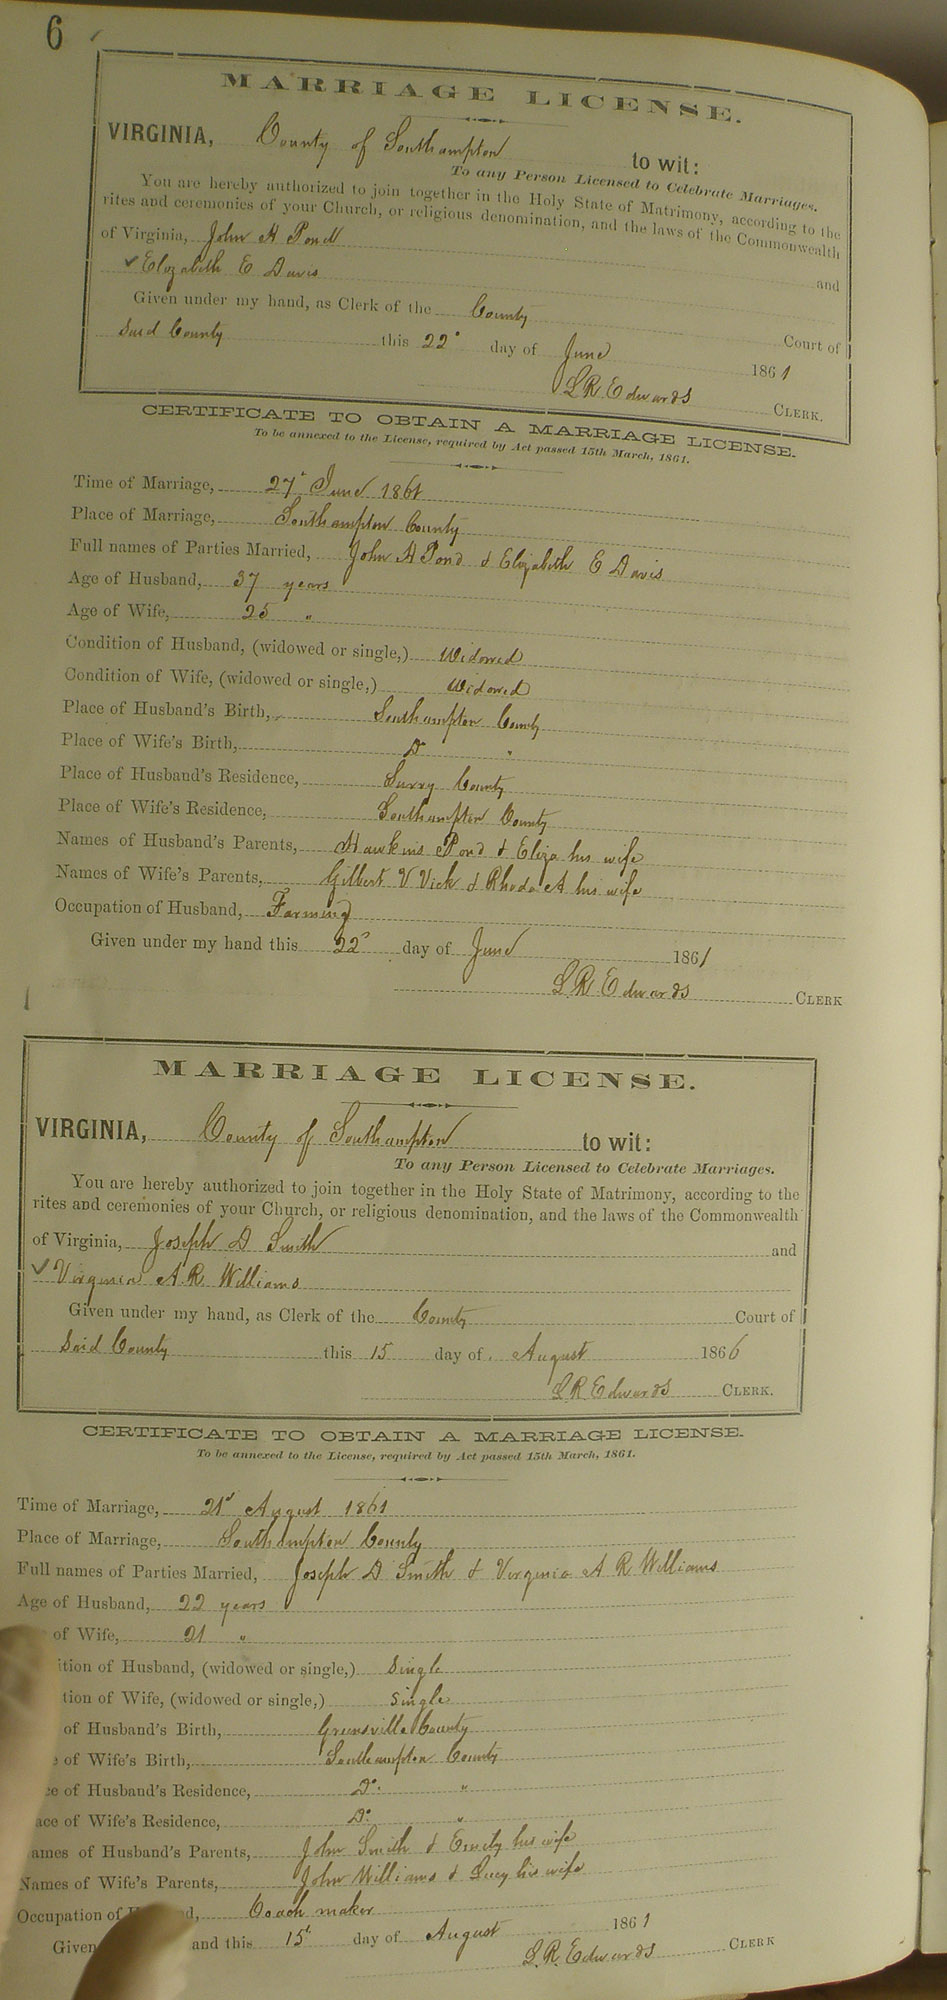 6
MARRIAGE LICENSE.
VIRGINIA, County of Southampton to wit:
To any Person Licensed to Celebrate Marriages.
You are hereby authorized to join together in the Holy State of Matrimony, according to the
rites and ceremonies of your Church, or religious denomination, and the laws of the Commonwealth
of Virginia, John H Pond and
✓ Elizabeth E Davis
Given under my hand, as Clerk of the County Court of
Said County this 22d day of June 1861
L R Edwards CLERK.
CERTIFICATE TO OBTAIN A MARRIAGE LICENSE.
To be annexed to the License, required by Act passed 15th March, 1861.
Time of Marriage, 27 June 1861
Place of Marriage, Southampton County
Full names of Parties Married, John H Pond & Elizabeth E Davis
Age of Husband, 37 years
Age of Wife, 25 "
Condition of Husband, (widowed or single,) Widowed
Condition of Wife, (widowed or single,) Widowed
Place of Husband's Birth, Southampton County
Place of Wife's Birth, Do "
Place of Husband's Residence, Surry County
Place of Wife's Residence, Southampton County
Names of Husband's Parents, Hawkins Pond & Eliza his wife
Names of Wife's Parents, Gilbert V Vick & Rhoda A his wife
Occupation of Husband, Farming
Given under my hand this 22d day of June 1861
L R Edwards CLERK
MARRIAGE LICENSE.
VIRGINIA, County of Southampton to wit:
To any Person Licensed to Celebrate Marriages.
You are hereby authorized to join together in the Holy State of Matrimony, according to the
rites and ceremonies of your Church, or religious denomination, and the laws of the Commonwealth
of Virginia, Joseph D Smith and
✓ Virginia A. R. Williams
Given under my hand, as Clerk of the County Court of
Said County this 15 day of August 1866
L R Edwards CLERK.
CERTIFICATE TO OBTAIN A MARRIAGE LICENSE.
To be annexed to the License, required by Act passed 15th March, 1861.
Time of Marriage, 21st August 1861
Place of Marriage, Southampton County
Full names of Parties Married, Joseph D Smith & Virginia A R Williams
Age of Husband, 22 years
of Wife, 21 "
ition of Husband, (widowed or single,) Single
tion of Wife, (widowed or single,) Single
of Husband's Birth, Greensville County
of Wife's Birth, Southampton County
ce of Husband's Residence, Do. "
ace of Wife's Residence, Do. "
ames of Husband's Parents, John Smith & Emily his wife
Names of Wife's Parents, John Williams & Lucy his wife
Occupation of H d, Coach maker
Given and this 15 day of August 1861
L. R. Edwards CLERK